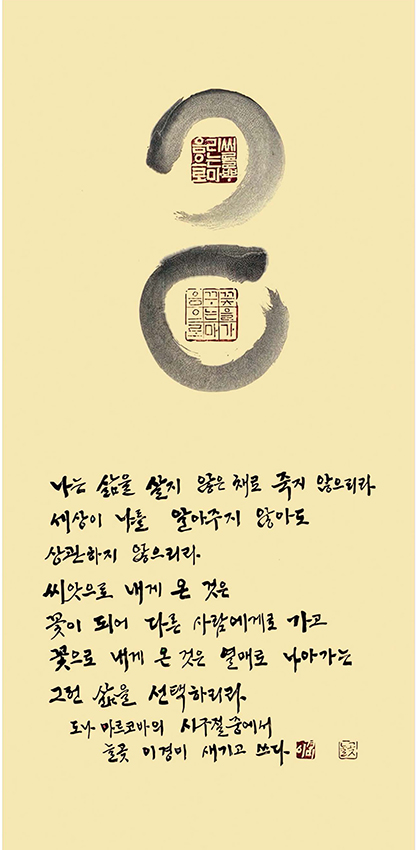 씨를뿌
리는마
음으로
꽃을가
꾸는마
음으로
나는 삶을 살지 않은 채로 죽지 않으리라
세상이 나를 알아주지 않아도
상관하지 않으리라.
씨앗으로 내게 온 것은
꽃이 되어 다른 사람에게로 가고
꽃으로 내게 온 것은 열매로 나아가는
그런 삶을 선택하리라.
도나 마르코바의 시구절 중에서
늘곶 이경미 새기고 쓰다.